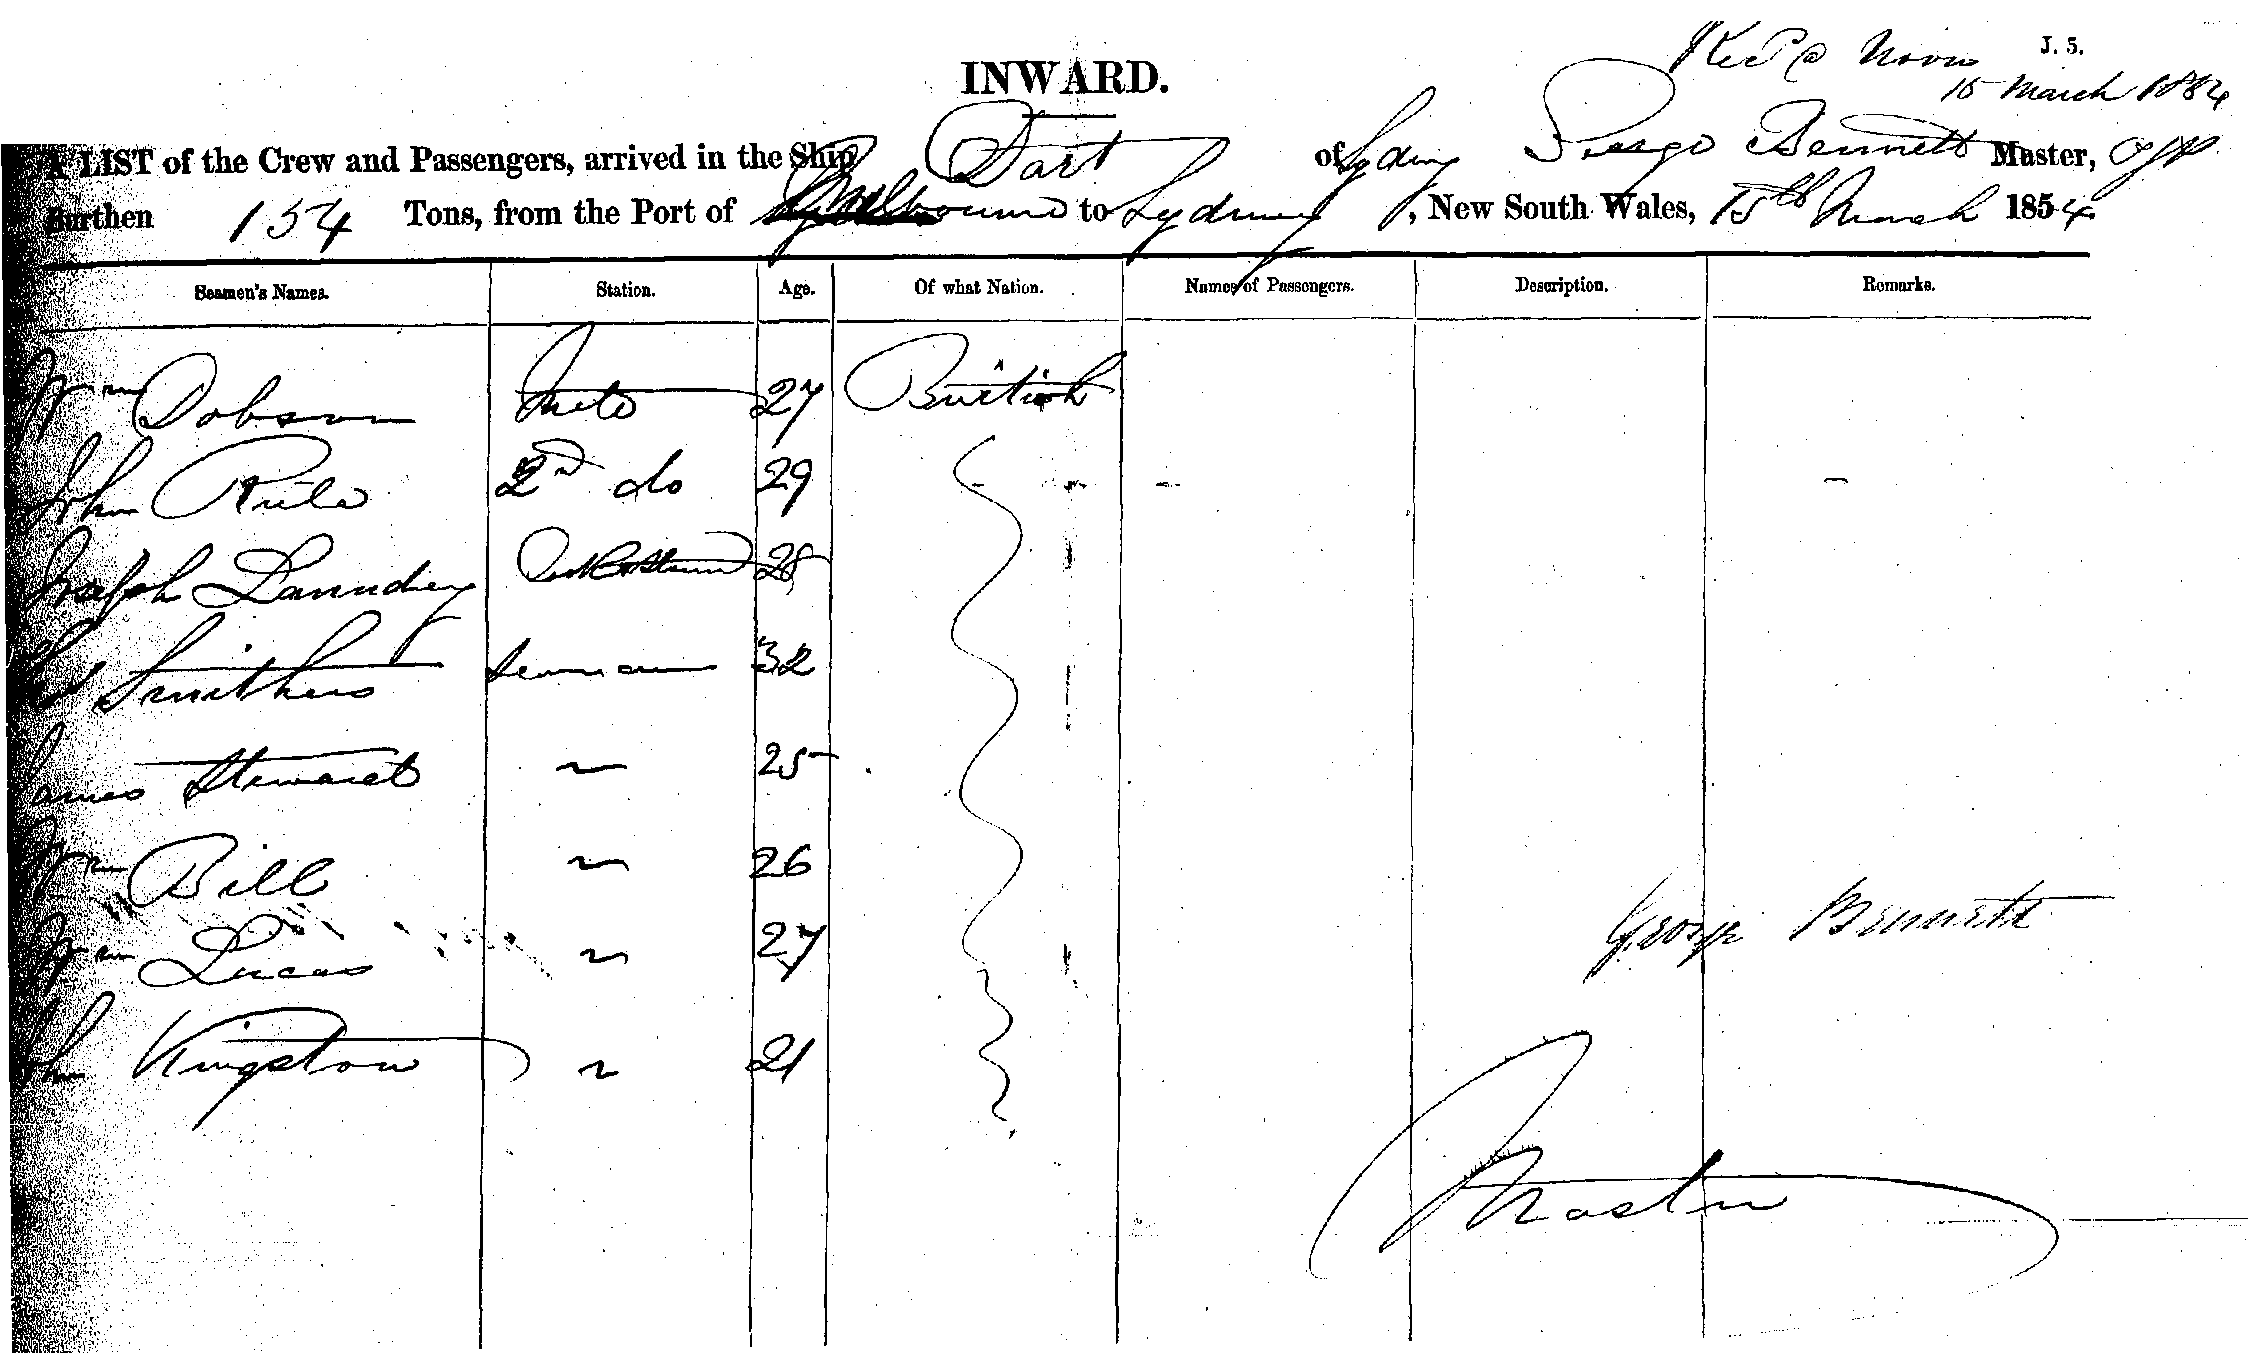 Noon J. 5.
15 March 1854
INWARD.
A LIST of the Crew and Passengers, arrived in the Ship Dart of Sydney George Bennett Master,
Burthen 154 Tons, from the Port of Melbourne to Sydney, New South Wales, 15th March 1854
Seamen's Names. Station. Age. Of what Nation. Names of Passengers. Description. Remarks.
Wm Dobson Mate 27 British
John 2nd do 29
Joseph 28
Smithers Seaman 32
James Stewart ~ 25
Wm Bill ~ 26
Wm Lucas ~ 27
George Bennett
Jhn Kingston ~ 21
Master